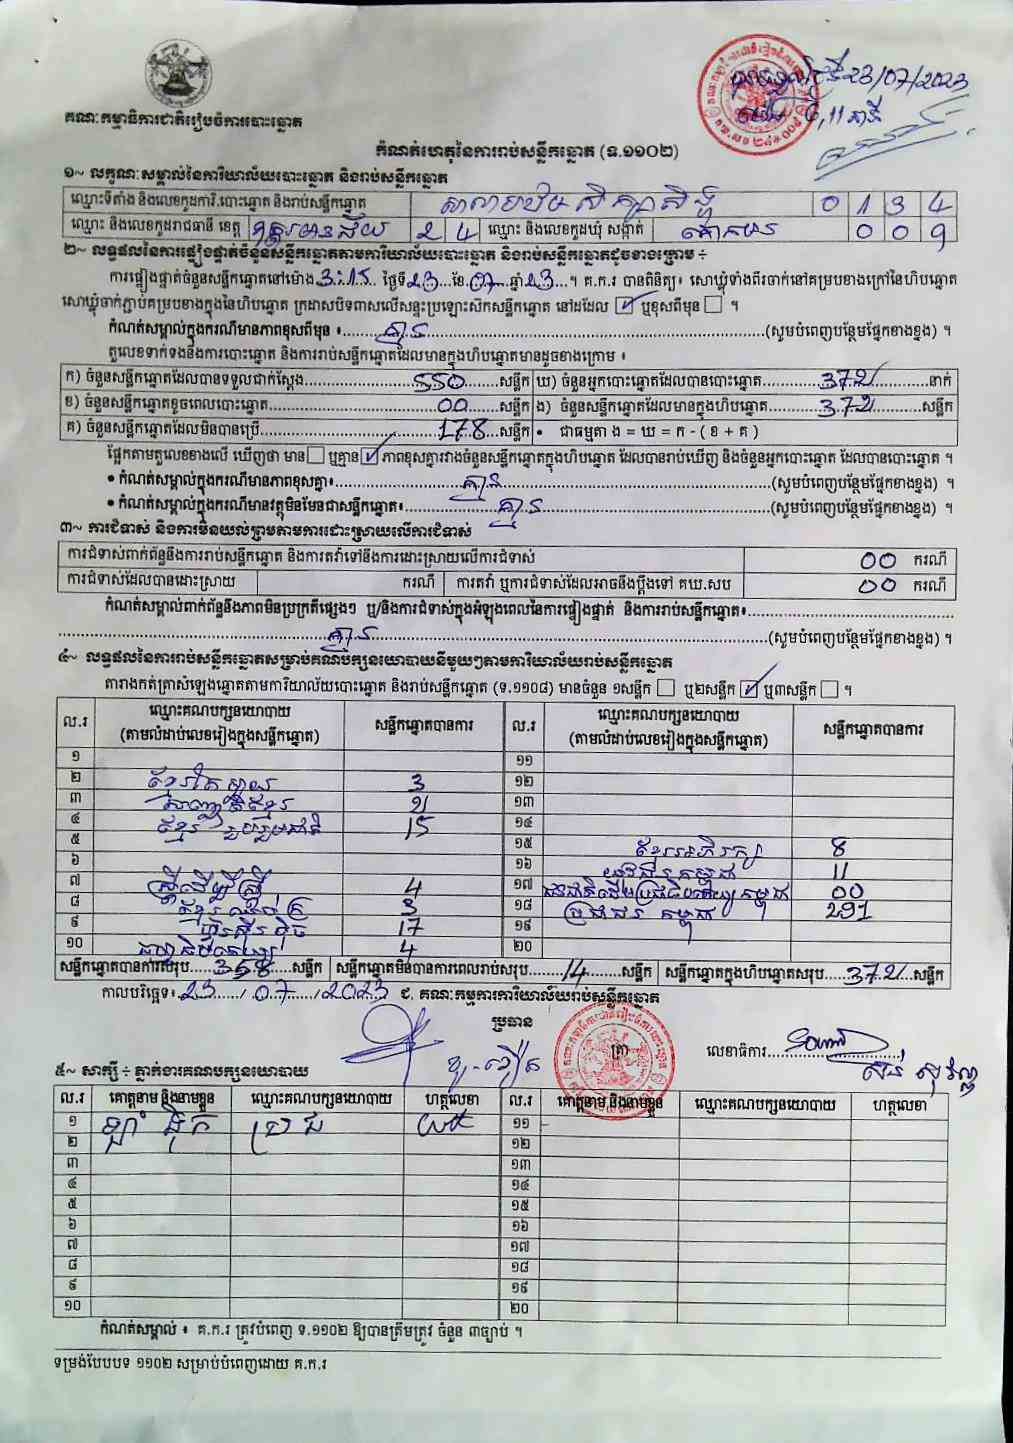 23/07/2023
គណៈកម្មាធិការជាតិរៀបចំការបោះឆ្នោត
កំណត់ហេតុនៃការរាប់សន្លឹកឆ្នោត (ទ.១១០២)
១~ លក្ខណៈសម្គាល់នៃការិយាល័យបោះឆ្នោត និងរាប់សន្លឹកឆ្នោត
ឈ្មោះទីតាំង និងលេខកូដការិ.បោះឆ្នោត និងរាប់សន្លឹកឆ្នោត 0 1 3 4
ឈ្មោះ និងលេខកូដរាជធានី ខេត្ត ឧត្តរមានជ័យ 2 4 ឈ្មោះ និងលេខកូដឃុំ សង្កាត់ គោកមន 0 0 9
២~ លទ្ធផលនៃការផ្ទៀងផ្ទាត់ចំនួនសន្លឹកឆ្នោតតាមការិយាល័យបោះឆ្នោត និងរាប់សន្លឹកឆ្នោតដូចខាងក្រោម ÷
ការផ្ទៀងផ្ទាត់ចំនួនសន្លឹកឆ្នោតនៅម៉ោង 3:15 ថ្ងៃទី 23 ខែ 07 ឆ្នាំ 23 ។ គ.ក.រ បានពិនិត្យ៖ សោឃ្លុំទាំងពីរចាក់នៅគម្របខាងក្រៅនៃហិបឆ្នោត
សោឃ្លុំចាក់ភ្ជាប់គម្របខាងក្នុងនៃហិបឆ្នោត ក្រដាសបិទពាសលើសន្ទះប្រឡោះសិកសន្លឹកឆ្នោត នៅដដែល ☑ ឬខុសពីមុន ☐ ។
កំណត់សម្គាល់ក្នុងករណីមានភាពខុសពីមុន ៖ គ្មាន (សូមបំពេញបន្ថែមផ្នែកខាងខ្នង) ។
តួលេខទាក់ទងនឹងការបោះឆ្នោត និងការរាប់សន្លឹកឆ្នោតដែលមានក្នុងហិបឆ្នោតមានដូចខាងក្រោម ៖
ក) ចំនួនសន្លឹកឆ្នោតដែលបានទទួលជាក់ស្តែង 550 សន្លឹក ឃ) ចំនួនអ្នកបោះឆ្នោតដែលបានបោះឆ្នោត 372 នាក់
ខ) ចំនួនសន្លឹកឆ្នោតខូចពេលបោះឆ្នោត 00 សន្លឹក ង) ចំនួនសន្លឹកឆ្នោតដែលមានក្នុងហិបឆ្នោត 372 សន្លឹក
គ) ចំនួនសន្លឹកឆ្នោតដែលមិនបានប្រើ 178 សន្លឹក • ជាធម្មតា ង = ឃ = ក - ( ខ + គ )
ផ្អែកតាមតួលេខខាងលើ ឃើញថា មាន ☐ ឬគ្មាន ☑ ភាពខុសគ្នារវាងចំនួនសន្លឹកឆ្នោតក្នុងហិបឆ្នោត ដែលបានរាប់ឃើញ និងចំនួនអ្នកបោះឆ្នោត ដែលបានបោះឆ្នោត ។
• កំណត់សម្គាល់ក្នុងករណីមានភាពខុសគ្នា៖ គ្មាន (សូមបំពេញបន្ថែមផ្នែកខាងខ្នង) ។
• កំណត់សម្គាល់ក្នុងករណីមានវត្ថុមិនមែនជាសន្លឹកឆ្នោត៖ គ្មាន (សូមបំពេញបន្ថែមផ្នែកខាងខ្នង) ។
៣~ ការជំទាស់ និងការមិនយល់ព្រមតាមការដោះស្រាយលើការជំទាស់
ការជំទាស់ពាក់ព័ន្ធនឹងការរាប់សន្លឹកឆ្នោត និងការតវ៉ាទៅនឹងការដោះស្រាយលើការជំទាស់ 00 ករណី
ការជំទាស់ដែលបានដោះស្រាយ ករណី ការតវ៉ា ឬការជំទាស់ដែលអាចនឹងប្តឹងទៅ គឃ.សប 00 ករណី
កំណត់សម្គាល់ពាក់ព័ន្ធនឹងភាពមិនប្រក្រតីផ្សេងៗ ឬ/និងការជំទាស់ក្នុងអំឡុងពេលនៃការផ្ទៀងផ្ទាត់ និងការរាប់សន្លឹកឆ្នោត៖
គ្មាន (សូមបំពេញបន្ថែមផ្នែកខាងខ្នង) ។
៤~ លទ្ធផលនៃការរាប់សន្លឹកឆ្នោតសម្រាប់គណបក្សនយោបាយនីមួយៗតាមការិយាល័យរាប់សន្លឹកឆ្នោត
តារាងកត់ត្រាសំឡេងឆ្នោតតាមការិយាល័យបោះឆ្នោត និងរាប់សន្លឹកឆ្នោត (ទ.១១០៨) មានចំនួន ១សន្លឹក ☐ ឬ២សន្លឹក ☑ ឬ៣សន្លឹក ☐ ។
ល.រ ឈ្មោះគណបក្សនយោបាយ (តាមលំដាប់លេខរៀងក្នុងសន្លឹកឆ្នោត) សន្លឹកឆ្នោតបានការ ល.រ ឈ្មោះគណបក្សនយោបាយ (តាមលំដាប់លេខរៀងក្នុងសន្លឹកឆ្នោត) សន្លឹកឆ្នោតបានការ
១ ១១
២ ខ្មែរតែមួយ 3 ១២
៣ សញ្ជាតិខ្មែរ 2 ១៣
៤ ខ្មែរ រួបរួមជាតិ 15 ១៤
៥ ១៥ ខ្មែរអភិរក្ស 8
៦ ១៦ យុវជនកម្ពុជា 11
៧ ស្ត្រីដើម្បីស្ត្រី 4 ១៧ 00
៨ 3 ១៨ ប្រជាជន កម្ពុជា 291
៩ ហ៊្វុនស៊ិនប៉ិច 17 ១៩
១០ 4 ២០
សន្លឹកឆ្នោតបានការសរុប 358 សន្លឹក សន្លឹកឆ្នោតមិនបានការពេលរាប់សរុប 14 សន្លឹក សន្លឹកឆ្នោតក្នុងហិបឆ្នោតសរុប 372 សន្លឹក
កាលបរិច្ឆេទ៖ 23 / 07 / 2023 ជ. គណៈកម្មការការិយាល័យរាប់សន្លឹកឆ្នោត
ប្រធាន
ត្រា
លេខាធិការ
៥~ សាក្សី ÷ ភ្នាក់ងារគណបក្សនយោបាយ
ល.រ គោត្តនាម និងនាមខ្លួន ឈ្មោះគណបក្សនយោបាយ ហត្ថលេខា ល.រ គោត្តនាម និងនាមខ្លួន ឈ្មោះគណបក្សនយោបាយ ហត្ថលេខា
១ ប្រជា ១១
២ ១២
៣ ១៣
៤ ១៤
៥ ១៥
៦ ១៦
៧ ១៧
៨ ១៨
៩ ១៩
១០ ២០
កំណត់សម្គាល់ ៖ គ.ក.រ ត្រូវបំពេញ ទ.១១០២ ឱ្យបានត្រឹមត្រូវ ចំនួន ៣ច្បាប់ ។
ទម្រង់បែបបទ ១១០២ សម្រាប់បំពេញដោយ គ.ក.រ